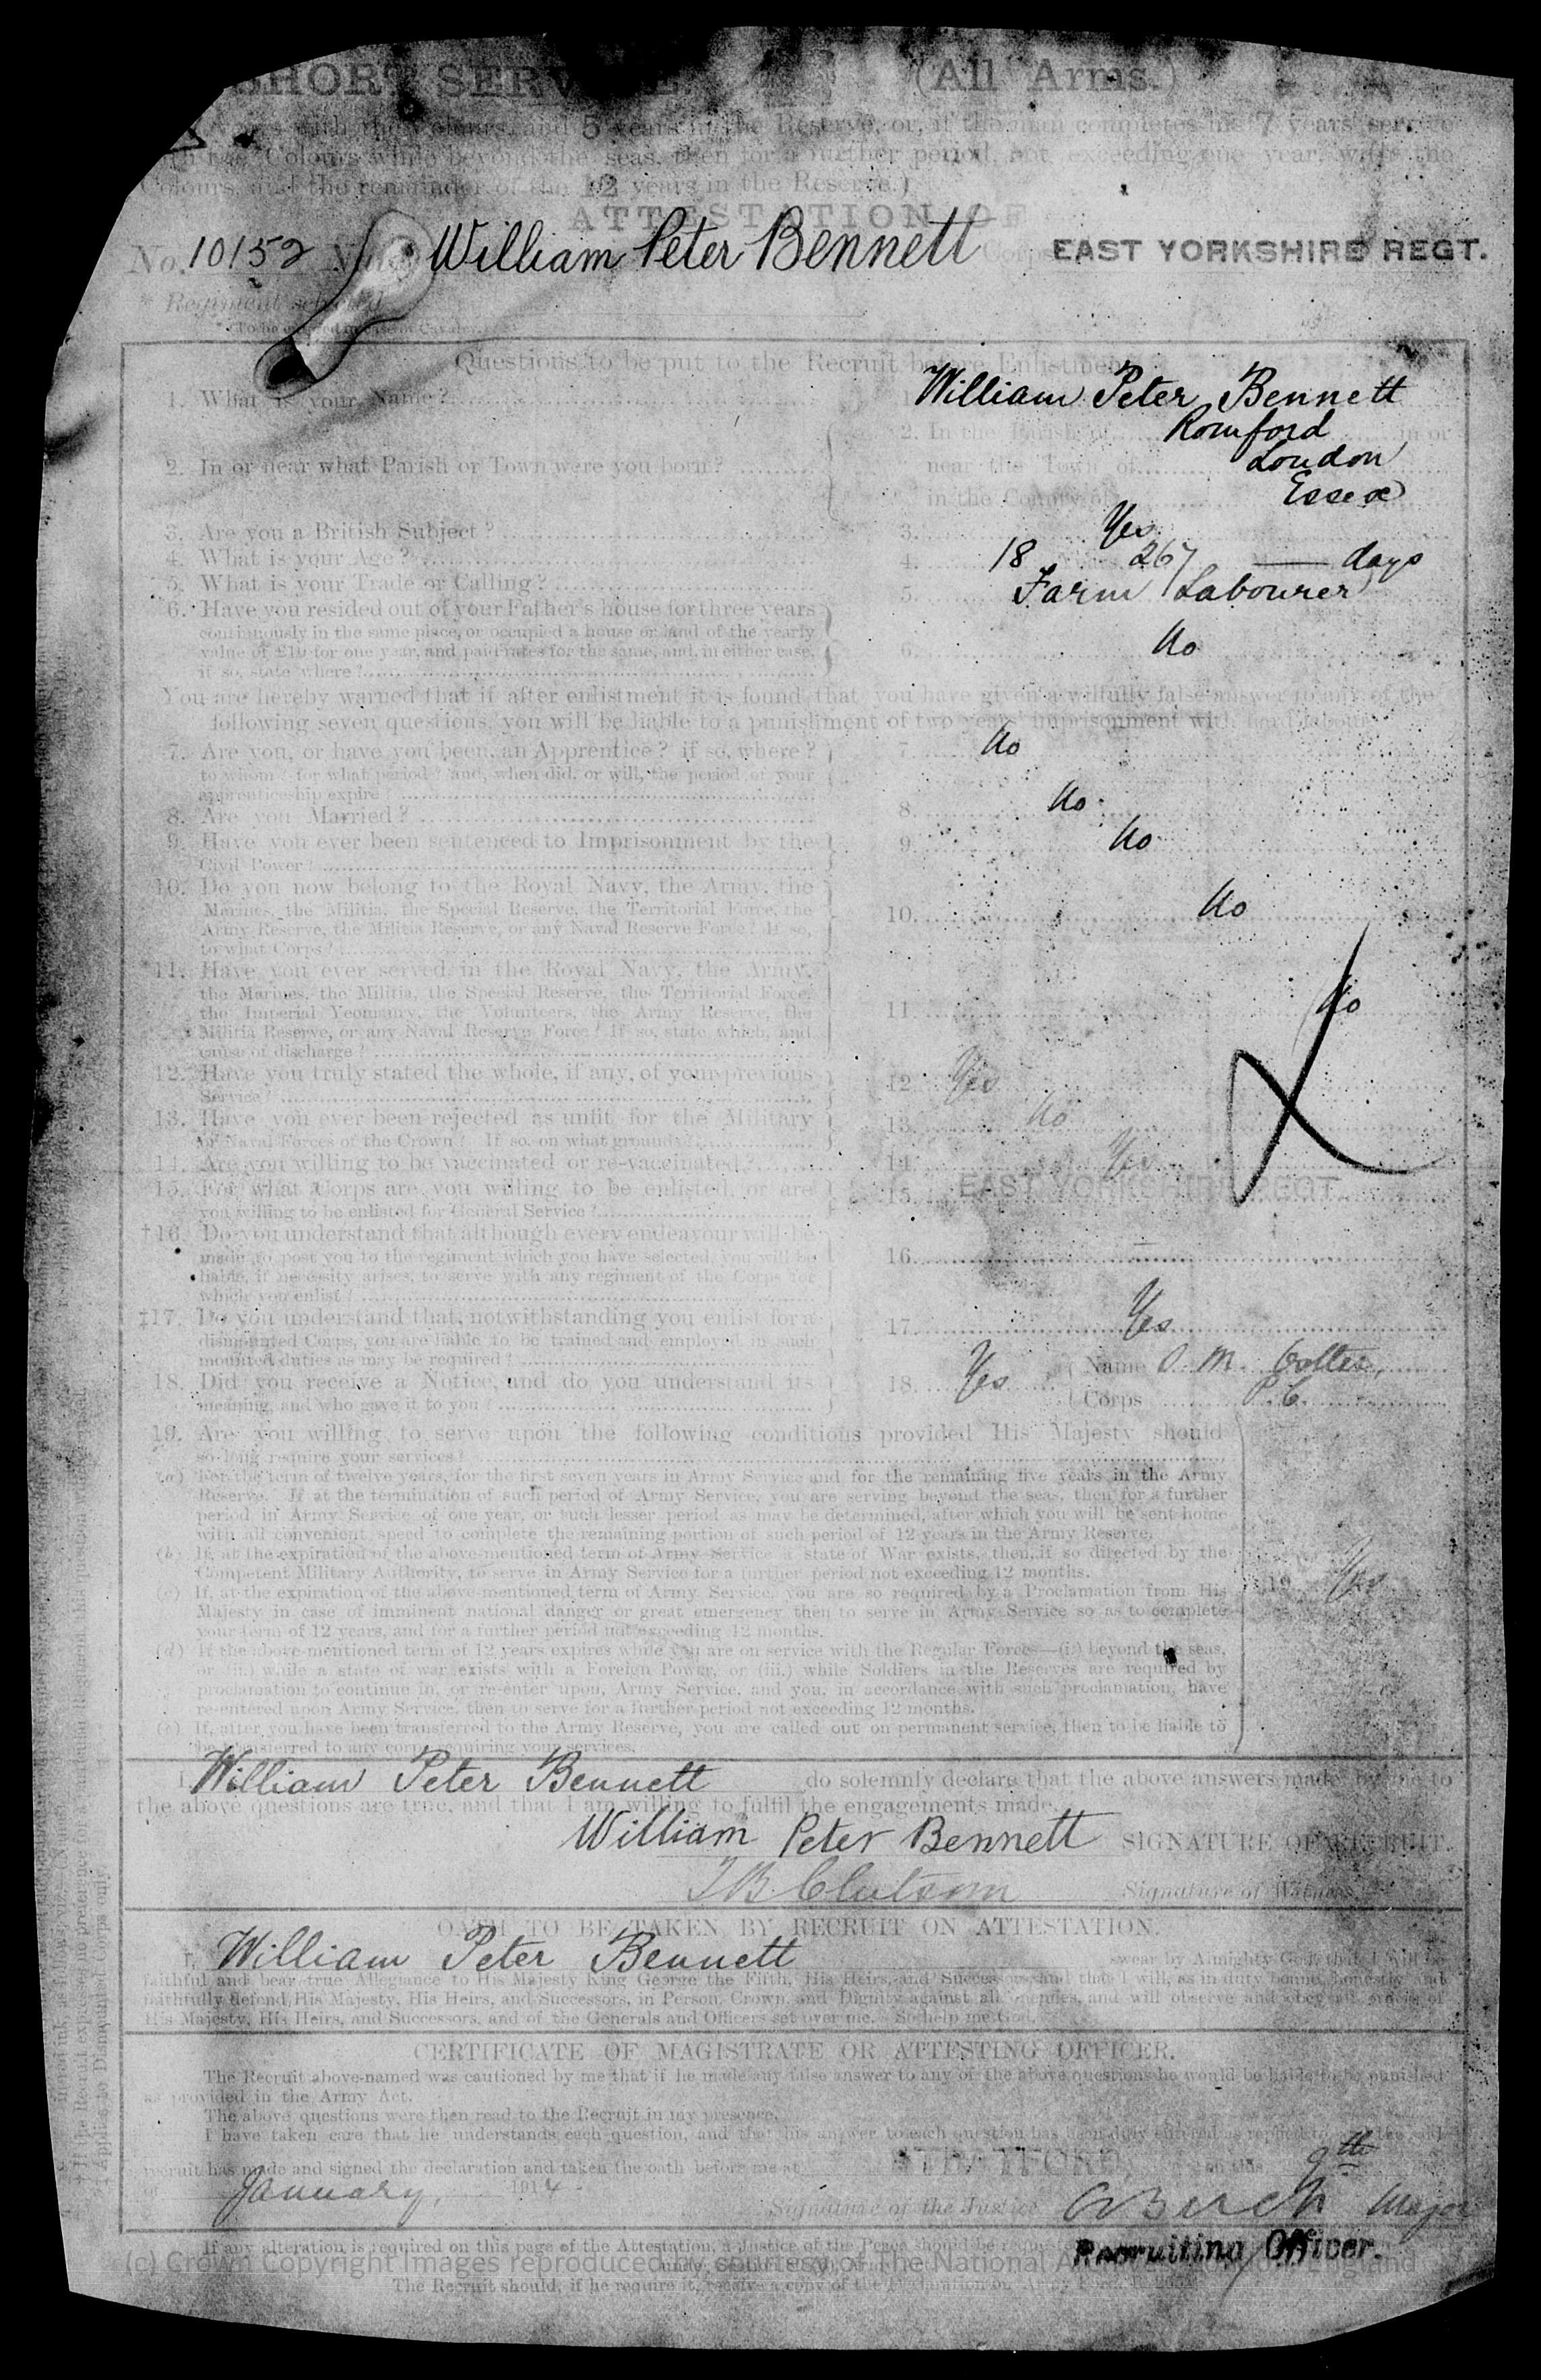 SHORT SERVICE. (All Arms.)
years with the Colours, and 5 years in the Reserve, or, if the man completes his 7 years' service
with the Colours while beyond the seas, then for a further period, not exceeding one year, with the
Colours, and the remainder of the 12 years in the Reserve.)
ATTESTATION OF
No. 10152 Name William Peter Bennett Corps EAST YORKSHIRE REGT.
* Regiment selected
Questions to be put to the Recruit before Enlistment.
1. What is your Name? 1. William Peter Bennett
2. In the Parish of Romford in or
2. In or near what Parish or Town were you born? near the Town of London
in the County of Essex
3. Are you a British Subject? 3. Yes
4. What is your Age? 4. 18 267 — days
5. What is your Trade or Calling? 5. Farm Labourer
6. Have you resided out of your Father's house for three years
continuously in the same place, or occupied a house or land of the yearly
value of £10 for one year, and paid rates for the same, and, in either case,
if so, state where? 6. No
You are hereby warned that if after enlistment it is found that you have given a wilfully false answer to any of the
following seven questions, you will be liable to a punishment of two years' imprisonment with hard labour.
7. Are you, or have you been, an Apprentice? if so, where? 7. No
to whom? for what period? and, when did, or will, the period of your
apprenticeship expire?
8. Are you Married? 8. No
9. Have you ever been sentenced to Imprisonment by the 9. No
Civil Power?
10. Do you now belong to the Royal Navy, the Army, the
Marines, the Militia, the Special Reserve, the Territorial Force, the 10. No
Army Reserve, the Militia Reserve, or any Naval Reserve Force? If so,
to what Corps?
11. Have you ever served in the Royal Navy, the Army,
the Marines, the Militia, the Special Reserve, the Territorial Force,
the Imperial Yeomanry, the Volunteers, the Army Reserve, the 11. No
Militia Reserve, or any Naval Reserve Force? If so, state which, and
cause of discharge?
12. Have you truly stated the whole, if any, of your previous 12. Yes
Service?
13. Have you ever been rejected as unfit for the Military 13. No
or Naval Forces of the Crown? If so, on what grounds?
14. Are you willing to be vaccinated or re-vaccinated? 14. Yes
15. For what Corps are you willing to be enlisted, or are 15. EAST YORKSHIRE REGT.
you willing to be enlisted for General Service?
†16. Do you understand that although every endeavour will be
made to post you to the regiment which you have selected, you will be 16. —
liable, if necessity arises, to serve with any regiment of the Corps for
which you enlist?
‡17. Do you understand that, notwithstanding you enlist for a 17. Yes
dismounted Corps, you are liable to be trained and employed in such
mounted duties as may be required?
18. Did you receive a Notice, and do you understand its 18. Yes Name
meaning, and who gave it to you? Corps P.C.
19. Are you willing to serve upon the following conditions provided His Majesty should
so long require your services?
(a) For the term of twelve years, for the first seven years in Army Service and for the remaining five years in the Army
Reserve. If at the termination of such period of Army Service, you are serving beyond the seas, then for a further
period in Army Service of one year, or such lesser period as may be determined, after which you will be sent home
with all convenient speed to complete the remaining portion of such period of 12 years in the Army Reserve.
(b) If, at the expiration of the above-mentioned term of Army Service a state of War exists, then, if so directed by the
Competent Military Authority, to serve in Army Service for a further period not exceeding 12 months. 19. Yes
(c) If, at the expiration of the above-mentioned term of Army Service, you are so required by a Proclamation from His
Majesty in case of imminent national danger or great emergency then to serve in Army Service so as to complete
your term of 12 years, and for a further period not exceeding 12 months.
(d) If the above-mentioned term of 12 years expires while you are on service with the Regular Forces—(i.) beyond the seas,
or (ii.) while a state of war exists with a Foreign Power, or (iii.) while Soldiers in the Reserves are required by
proclamation to continue in, or re-enter upon, Army Service, and you, in accordance with such proclamation, have
re-entered upon Army Service, then to serve for a further period not exceeding 12 months.
(e) If, after you have been transferred to the Army Reserve, you are called out on permanent service, then to be liable to
be transferred to any corps requiring your services.
I, William Peter Bennett do solemnly declare that the above answers made by me to
the above questions are true, and that I am willing to fulfil the engagements made.
William Peter Bennett SIGNATURE OF RECRUIT.
Signature of Witness.
OATH TO BE TAKEN BY RECRUIT ON ATTESTATION.
I, William Peter Bennett swear by Almighty God, that I will be
faithful and bear true Allegiance to His Majesty King George the Fifth, His Heirs, and Successors, and that I will, as in duty bound, honestly and
faithfully defend His Majesty, His Heirs, and Successors, in Person, Crown, and Dignity against all enemies, and will observe and obey all orders of
His Majesty, His Heirs, and Successors, and of the Generals and Officers set over me. So help me God.
CERTIFICATE OF MAGISTRATE OR ATTESTING OFFICER.
The Recruit above-named was cautioned by me that if he made any false answer to any of the above questions he would be liable to be punished
as provided in the Army Act.
The above questions were then read to the Recruit in my presence.
I have taken care that he understands each question, and that his answer to each question has been duly entered as replied to, and the said
recruit has made and signed the declaration and taken the oath before me at STRATFORD on this 9th
of January, 1914.
Signature of the Justice Major
Recruiting Officer.
If any alteration is required on this page of the Attestation, a Justice of the Peace should be requested
(c) Crown Copyright Images reproduced by courtesy of The National Archives, London, England
The Recruit should, if he require it, receive a copy of the Declaration on Army Form